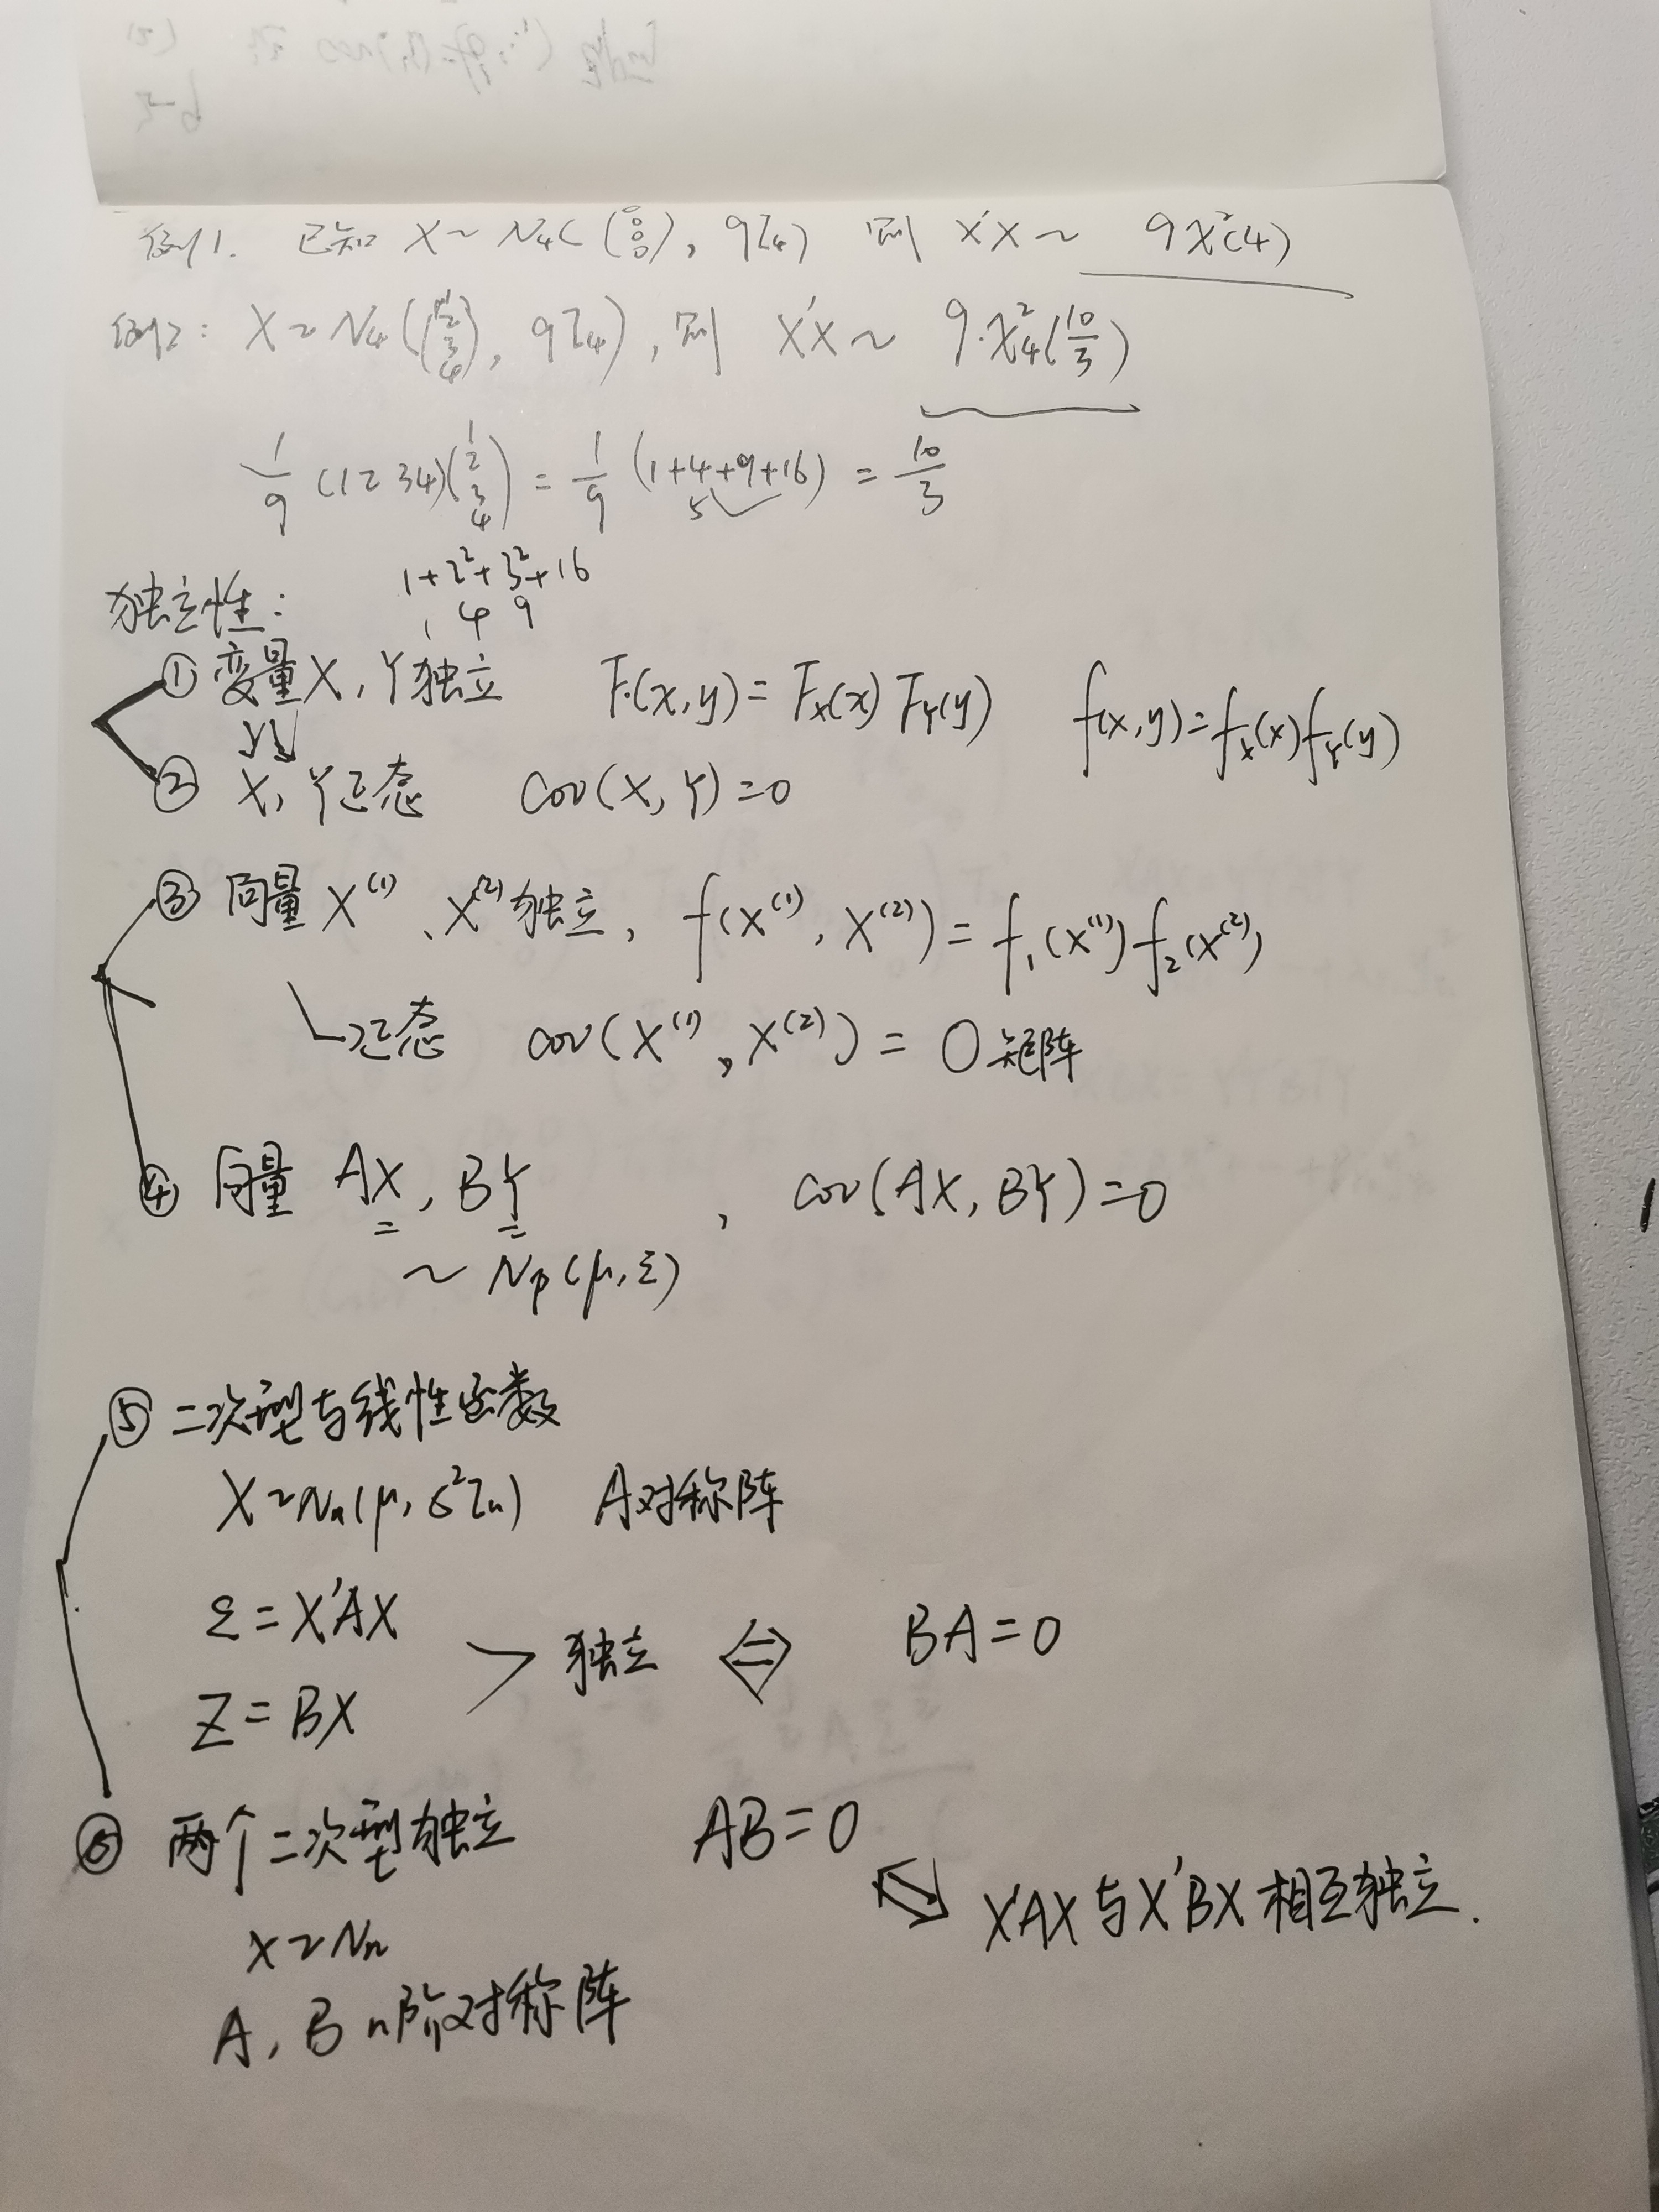 例1. 已知 X~N₄((0 0 0 0), 9I₄) 则 X'X ~ 9χ²(4)
例2: X~N₄((1 2 3 4), 9I₄), 则 X'X ~ 9·χ²₄(10/3)
1/9 (1 2 3 4)(1 2 3 4) = 1/9 (1+4+9+16) = 10/3
5
1+2²+3²+16
1 4 9
独立性:
① 变量X, Y独立 F(x,y)=F_X(x) F_Y(y) f(x,y)=f_X(x)f_Y(y)
② X, Y正态 cov(X, Y)=0
③ 向量 X⁽¹⁾、X⁽²⁾独立, f(X⁽¹⁾, X⁽²⁾)=f₁(X⁽¹⁾)f₂(X⁽²⁾)
正态 cov(X⁽¹⁾, X⁽²⁾) = O矩阵
④ 向量 AX, BY , cov(AX, BY)=0
~ N_p(μ, Σ)
⑤ 二次型与线性函数
X~N_n(μ, σ²I_n) A对称阵
ξ=X'AX
> 独立 ⇔ BA=0
Z=BX
⑥ 两个二次型独立 AB=0
⇔ X'AX与X'BX相互独立.
X~N_n
A, B n阶对称阵